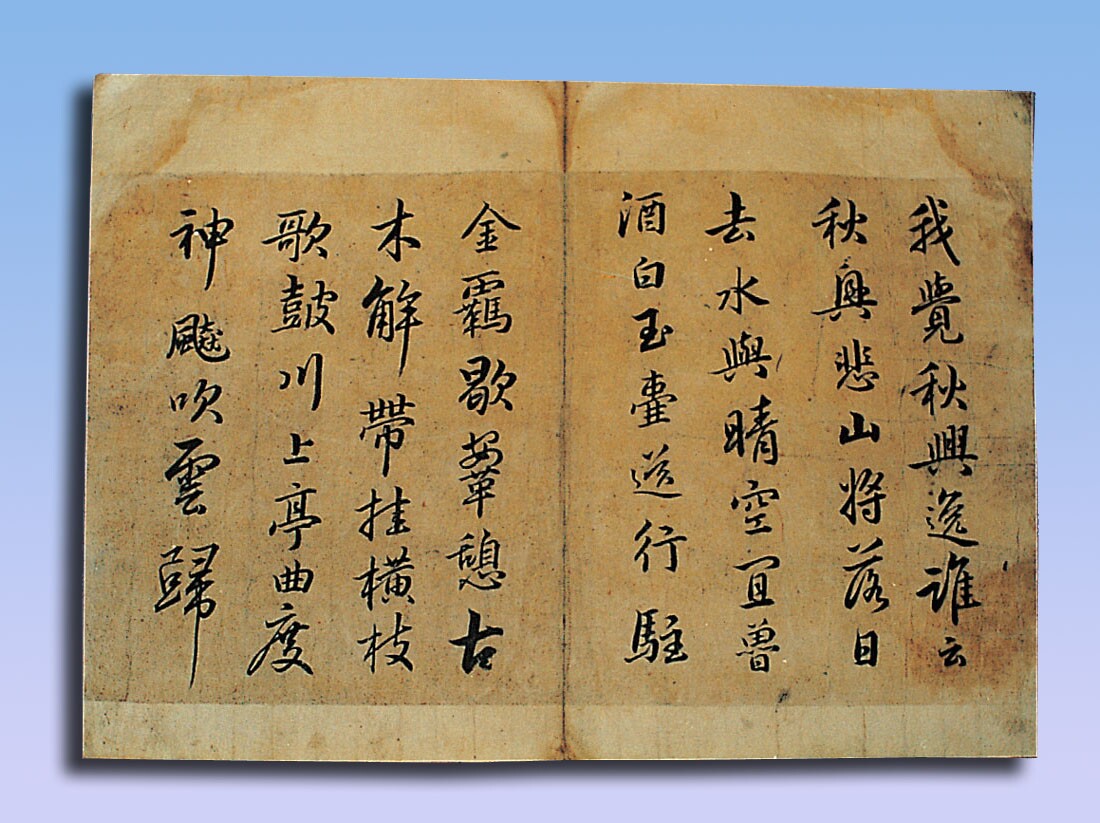 我覺秋興逸誰云
秋興悲山將落日
去水與晴空宜魯
酒白玉壺送行駐
金羈歇鞌憩古
木解帶挂橫枝
歌鼓川上亭曲度
神飈吹雲歸